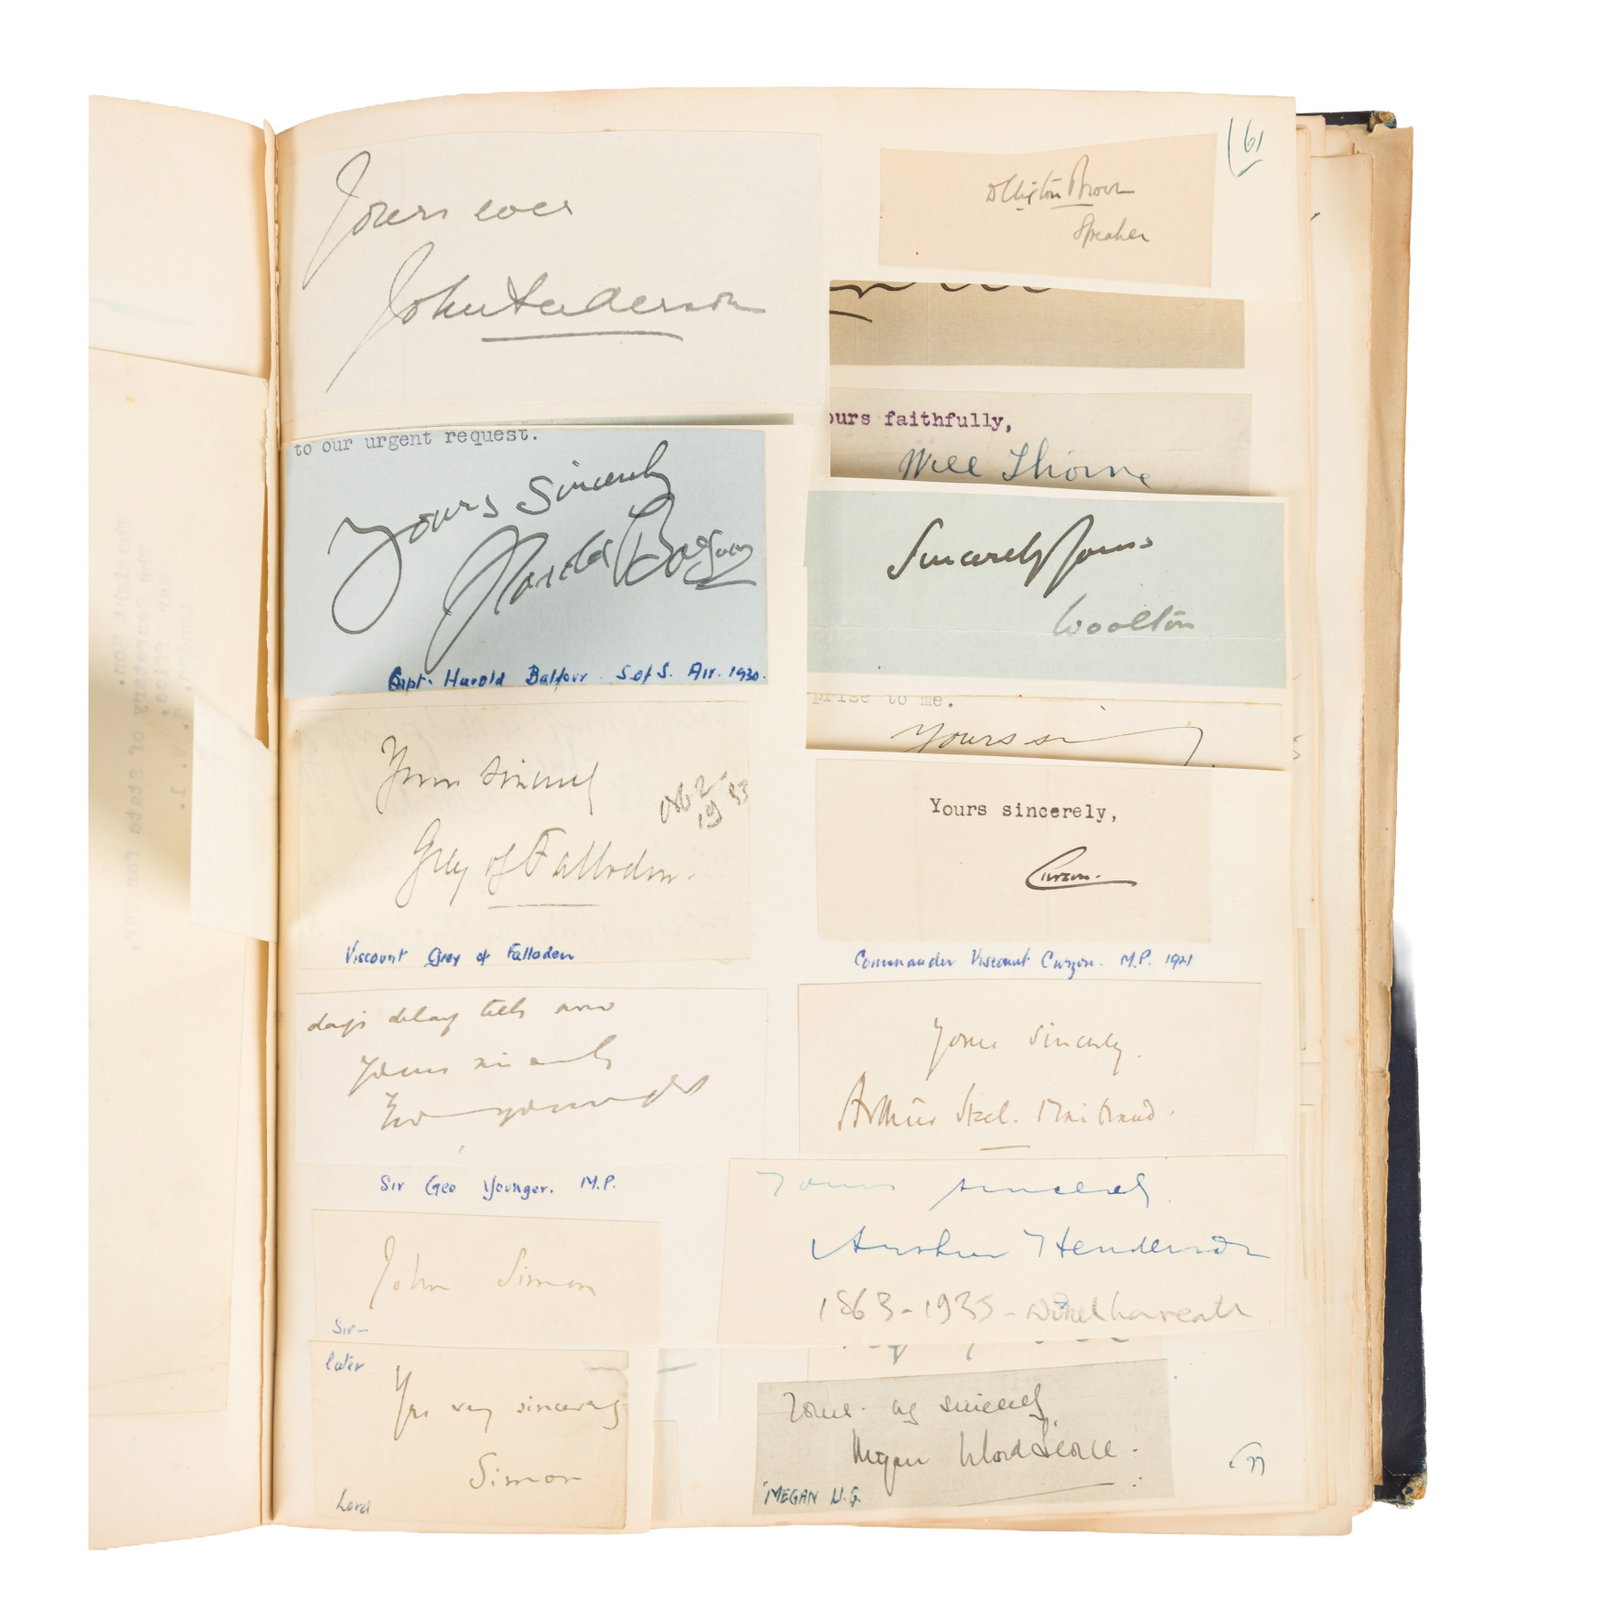 61
Yours ever
John Anderson
D Clifton Brown
Speaker
ours faithfully,
Will Thorne
to our urgent request.
Yours Sincerely
Harold Balfour
Capt. Harold Balfour. S of S. Air. 1930.
Sincerely Yours
Woolton
prise to me.
Yours si
Yours sincerely
Grey of Fallodon.
1933
Viscount Grey of Fallodon
Yours sincerely,
Curzon.
Commander Viscount Curzon. M.P. 1921
days delay
Yours sincerely
Geo Younger
Sir Geo Younger. M.P.
Yours sincerely.
Arthur Steel. Maitland.
Yours sincerely
Arthur Henderson
1863-1935-
John Simon
Sir-
later
Yrs very sincerely
Simon
Lord
Yours sincerely
Megan Lloyd George.
MEGAN Ll. G.
77
The Right Hon.
The Secretary of State for War,
War Office,
London, S.W.1.